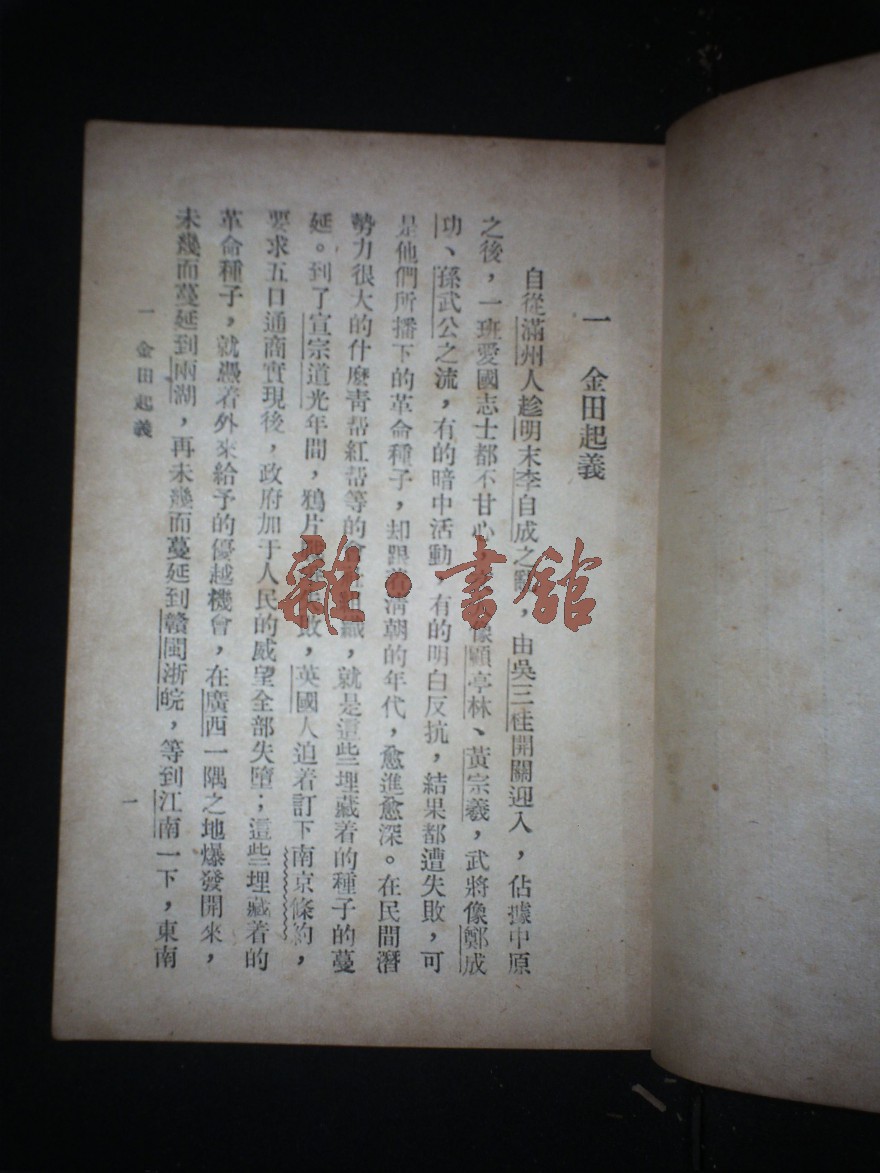 一 金田起義
自從滿州人趁明末李自成之，由吳三桂開關迎入，佔據中原
之後，一班愛國志士都不甘心，像顧亭林、黃宗羲，武將像鄭成
功、孫武公之流，有的暗中活動，有的明白反抗，結果都遭失敗，可
是他們所播下的革命種子，却跟着清朝的年代，愈進愈深。在民間潛
勢力很大的什麼青帮紅帮等的會，就是這些埋藏着的種子的蔓
延。到了宣宗道光年間，鴉片敗，英國人迫着訂下南京條約，
要求五口通商實現後，政府加于人民的威望全部失墮；這些埋藏着的
革命種子，就憑着外來給予的優越機會，在廣西一隅之地爆發開來，
未幾而蔓延到兩湖，再未幾而蔓延到贛閩浙皖，等到江南一下，東南
一 金田起義
一
雜·書館